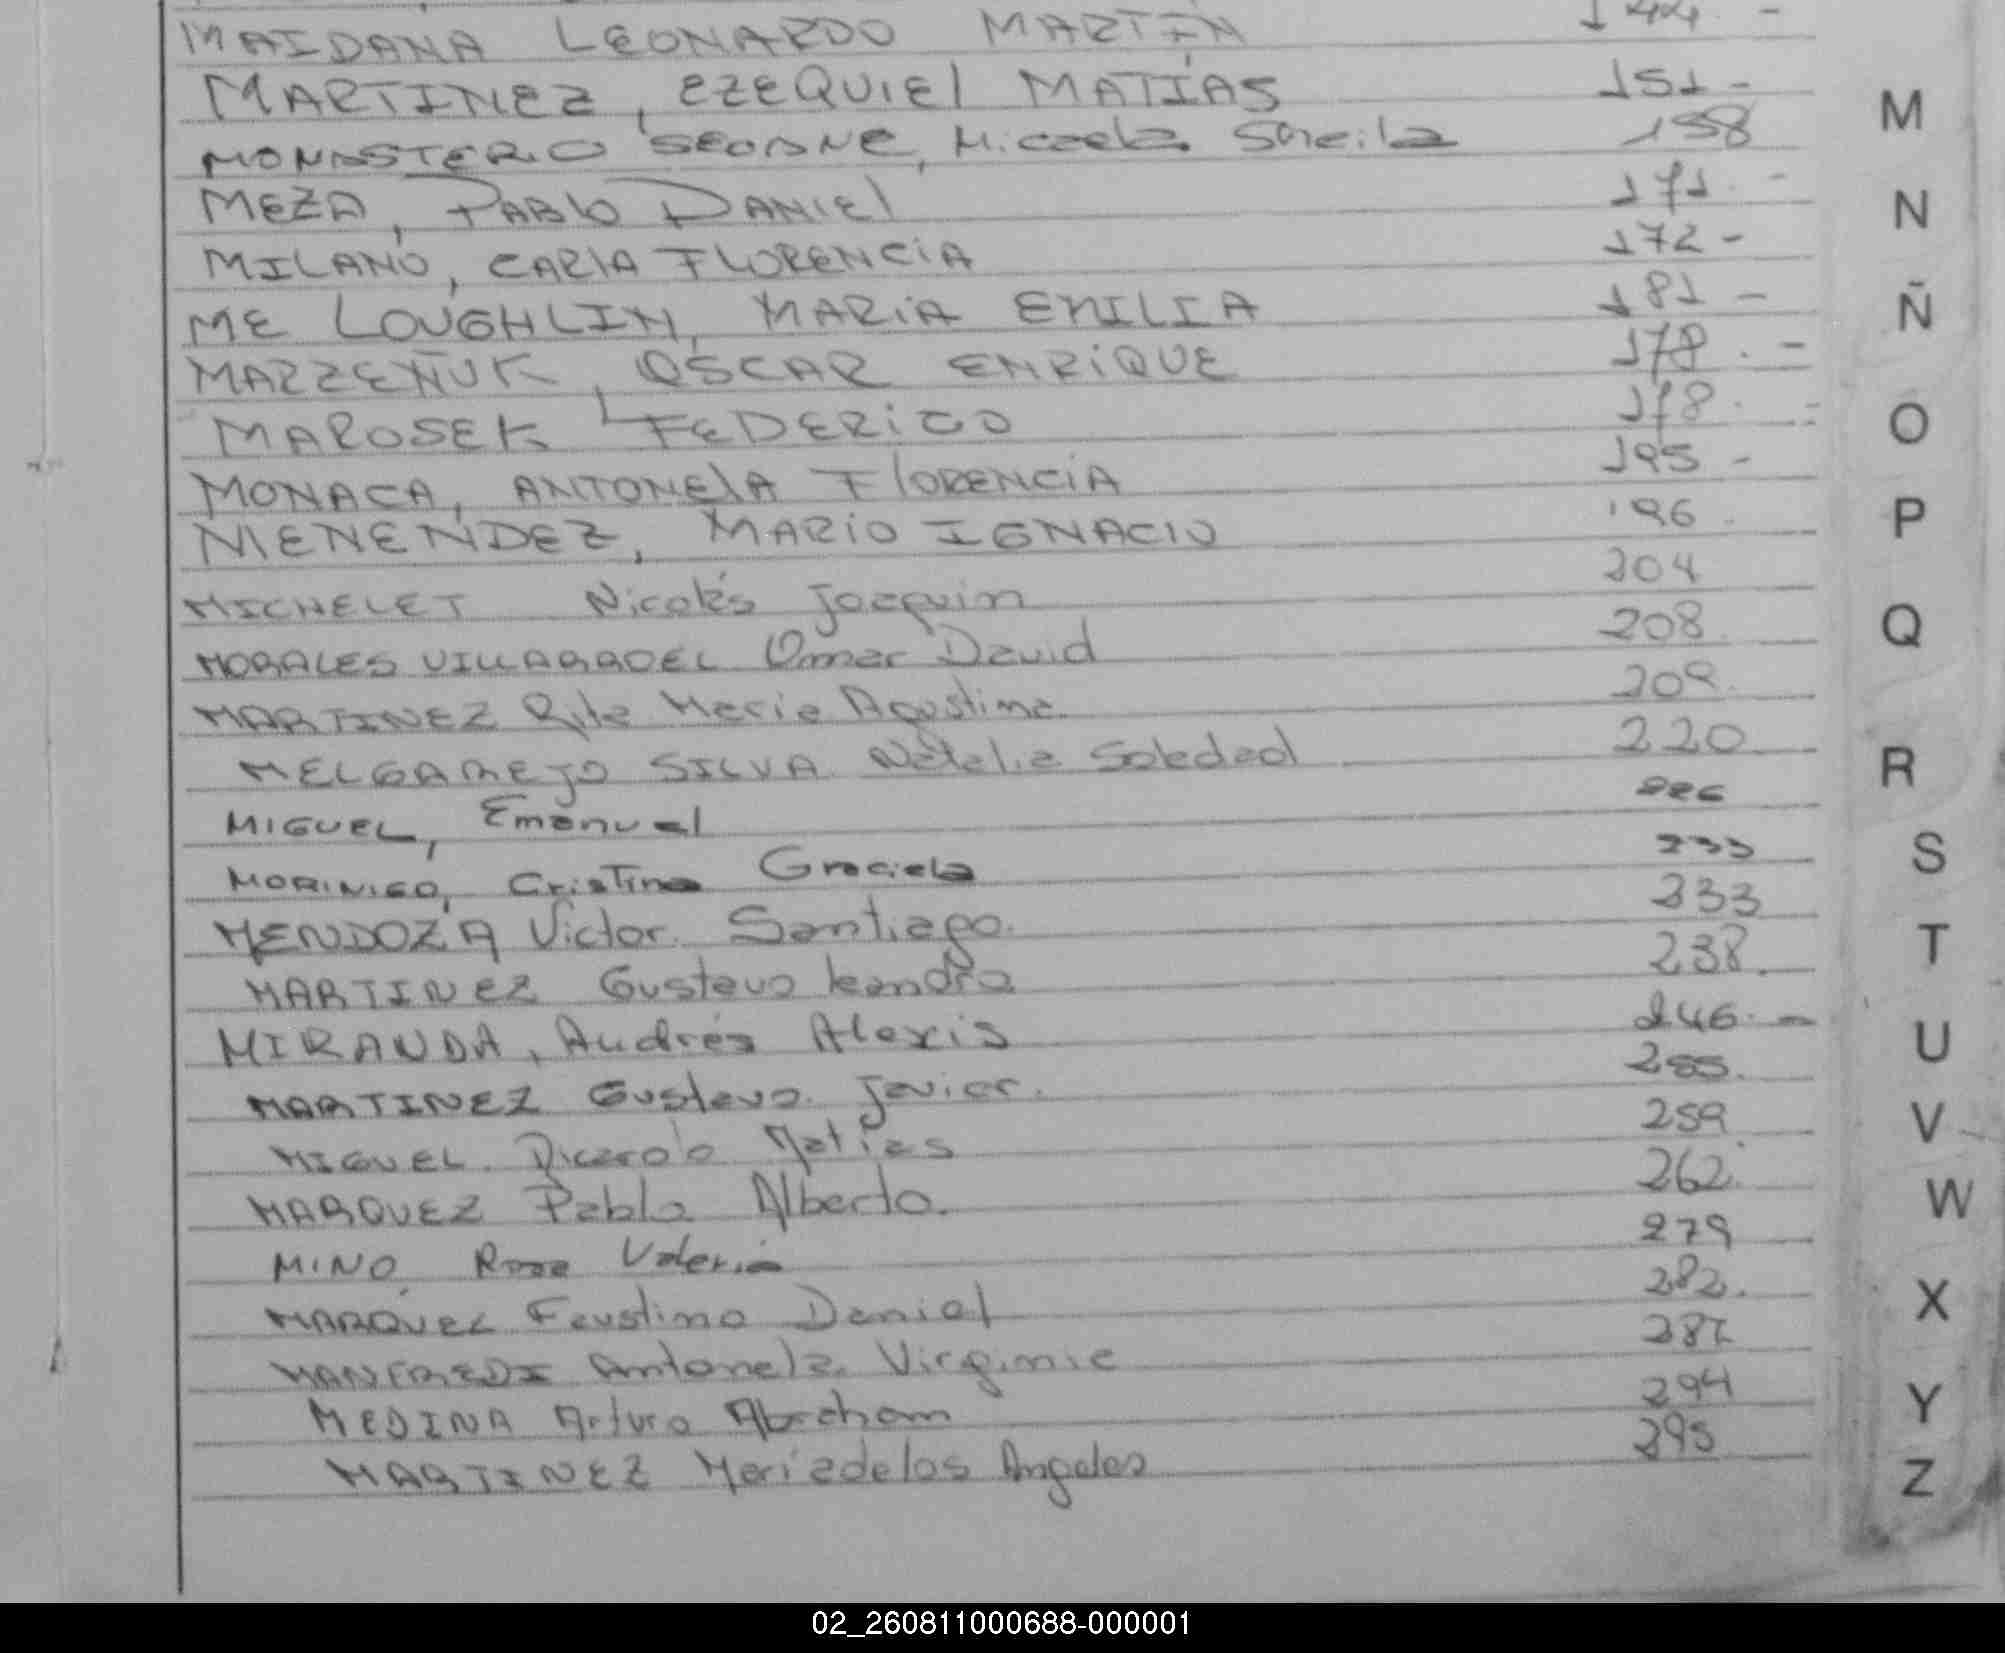 MAIDANA LEONARDO MARTÍN 144 -
MARTINEZ, EZEQUIEL MATÍAS 151 -
MONASTERIO SEOANE, Micaela Sheila 158
MEZA, PABLO DANIEL 171 -
MILANO, CARLA FLORENCIA 172 -
MC LOUGHLIN, MARIA EMILIA 181 -
MAZZEÑUK, OSCAR ENRIQUE 178. -
MAROSEK FEDERICO 178.
MONACA, ANTONELA FLORENCIA 195 -
MENENDEZ, MARIO IGNACIO 196
MICHELET Nicolás Joaquin 204
MORALES VILLARROEL Omar David 208
MARTINEZ Rita Maria Agustina. 209.
MELGAREJO SILVA Natalia Soledad 220
MIGUEL, Emanuel 226
MORINIGO, Cristina Graciela 233
MENDOZA Victor Santiago. 233
MARTINEZ Gustavo Leandro 238.
MIRANDA, Andrés Alexis 246. -
MARTINEZ Gustavo Javier. 255.
MIGUEL Matias 259
MARQUEZ Pablo Alberto. 262
MINO Rosa Valeria 279
MARQUEZ Faustino Daniel 282.
MANFREDI Antonela Virginia 287
MEDINA Arturo Abraham 294
MARTINEZ Maria de los Angeles 295
M
N
Ñ
O
P
Q
R
S
T
U
V
W
X
Y
Z
02_260811000688-000001